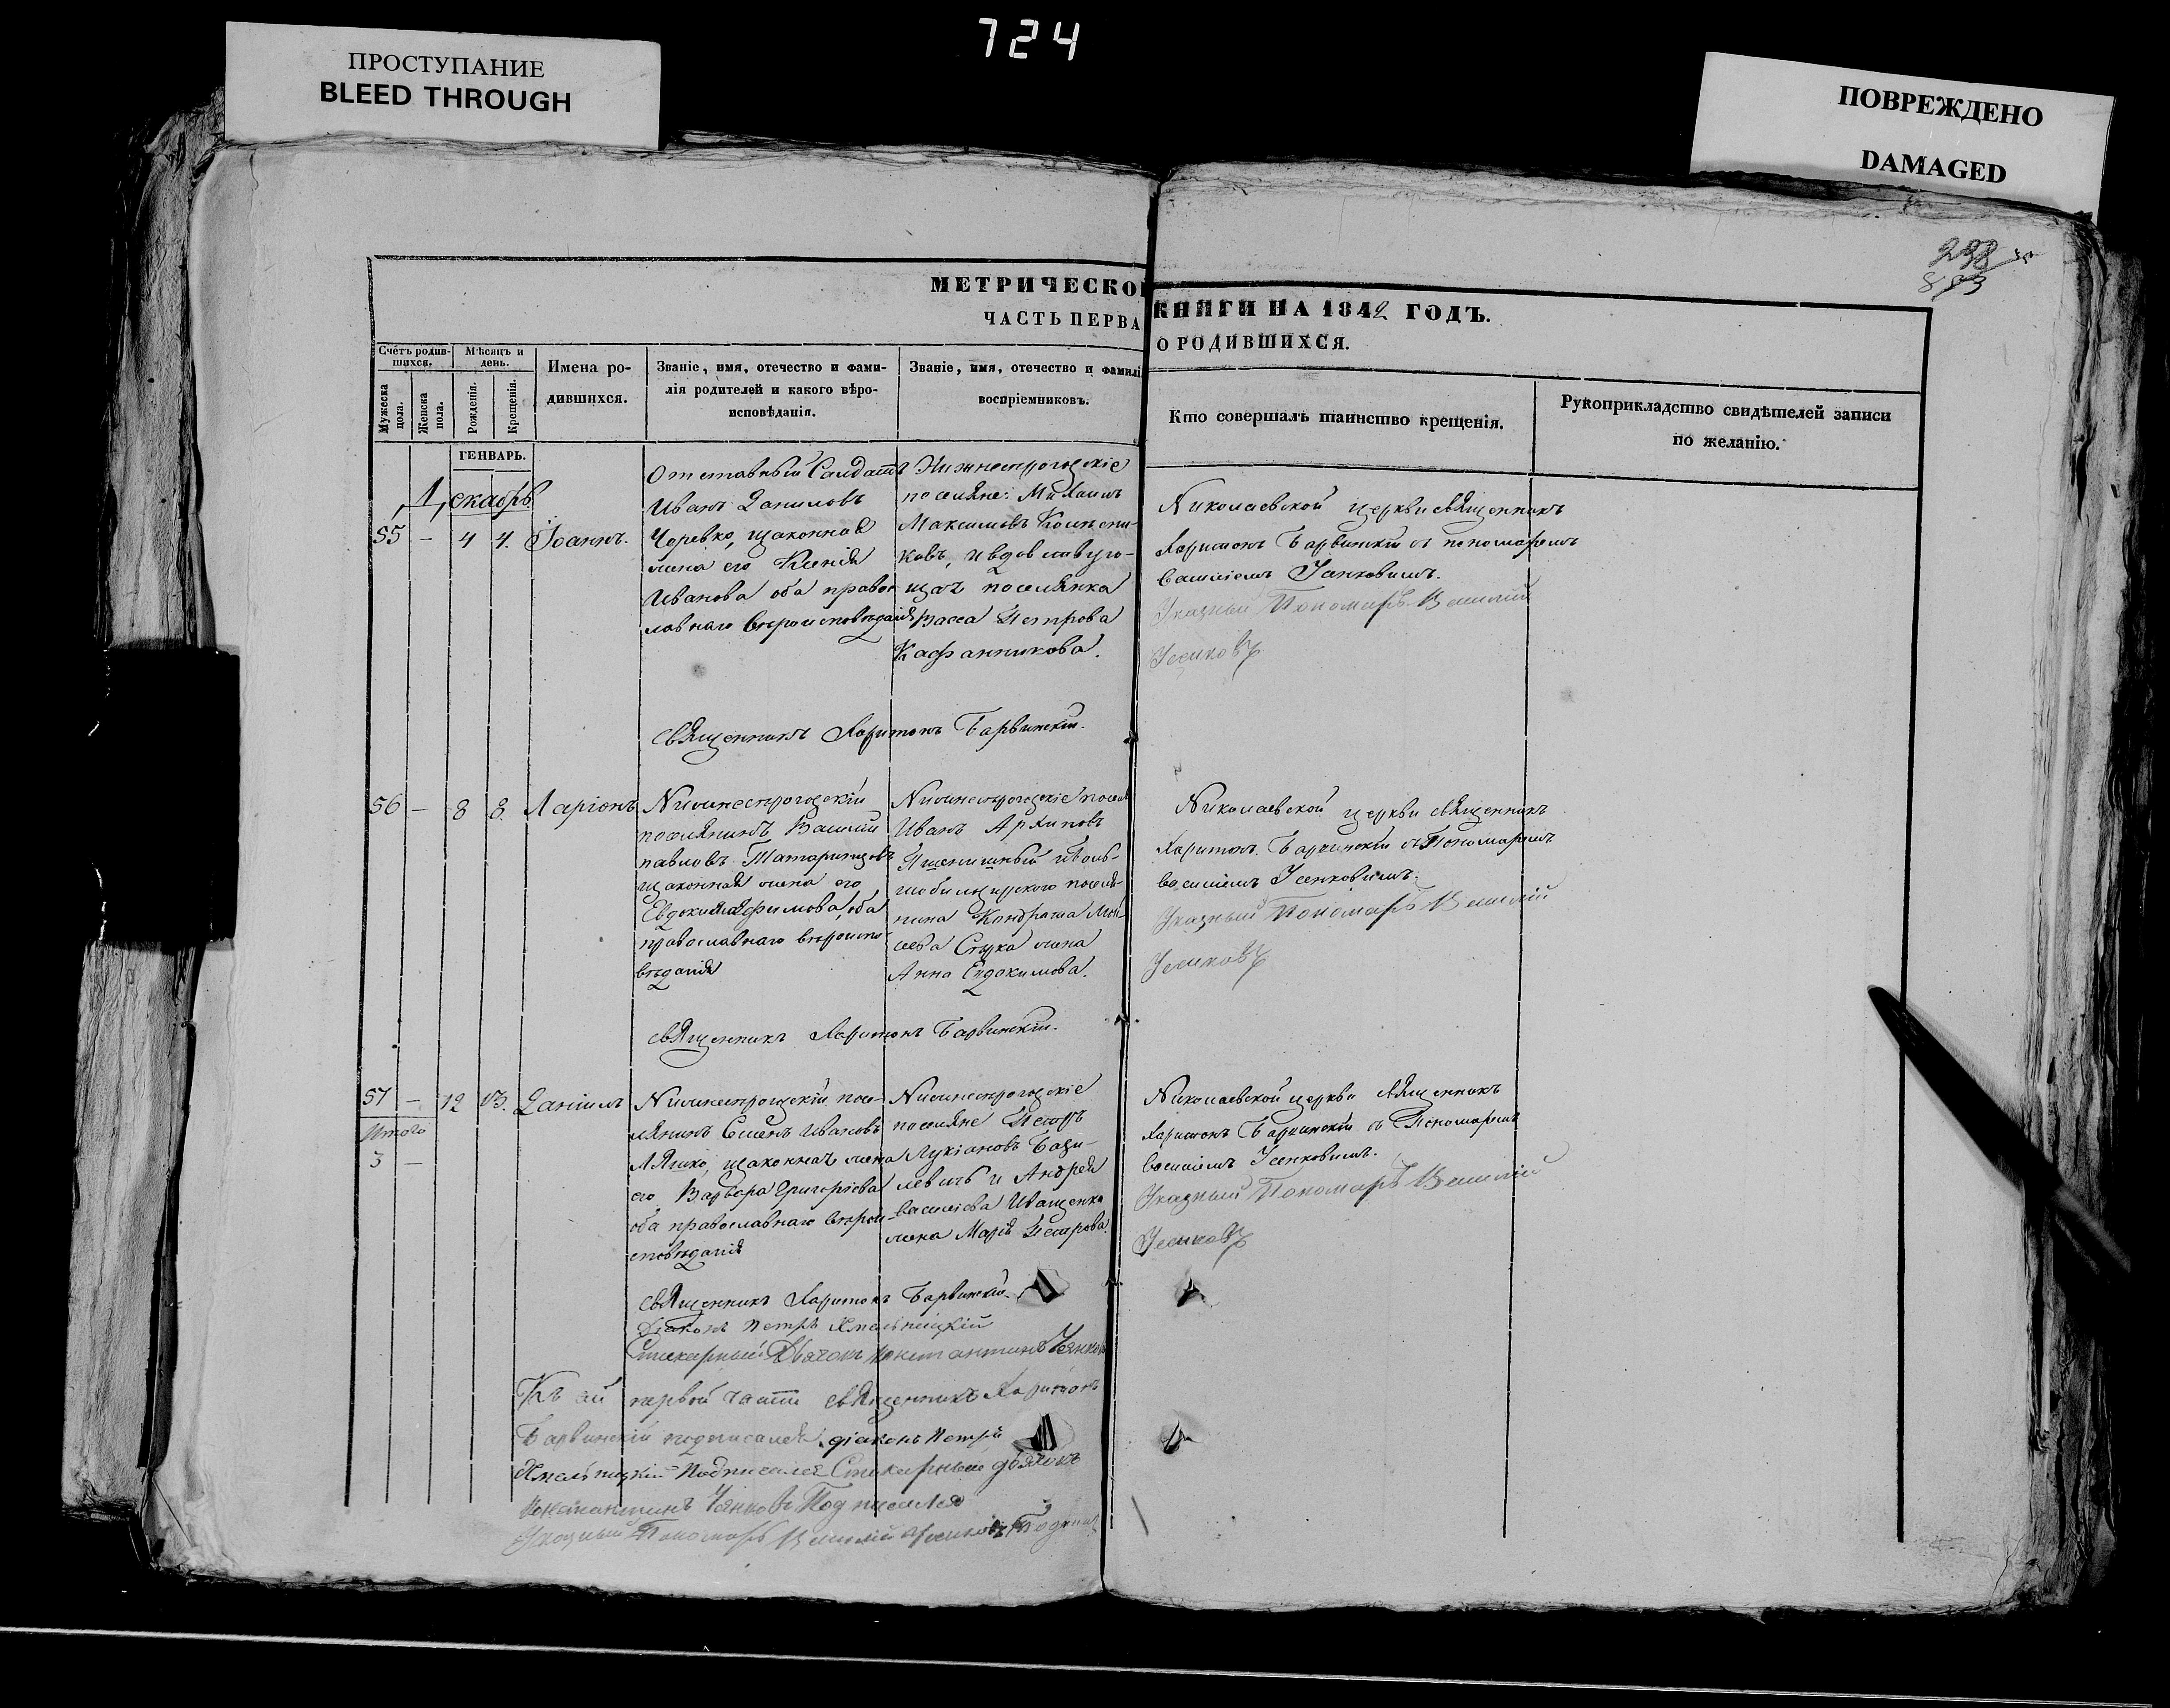 724
ПРОСТУПАНИЕ
BLEED THROUGH
ПОВРЕЖДЕНО
DAMAGED
МЕТРИЧЕСКО КНИГИ НА 1842 ГОДЪ.
ЧАСТЬ ПЕРВА О РОДИВШИХСЯ.
Счетъ родив-
шихся.
Мѣсяцъ и
день.
Мужеска
пола.
Женска
пола.
Рожденія.
Крещенія.
Имена ро-
дившихся.
Званіе, имя, отечество и фами-
лія родителей и какого вѣро-
исповѣданія.
Званіе, имя, отечество и фамилі
воспріемниковъ.
Кто совершалъ таинство крещенія.
Рукоприкладство свидѣтелей записи
по желанію.
ГЕНВАРЬ.
Декабрь
55 — 4 4. Іоаннъ.
Отставный Салдатъ
Иванъ Даниловъ
Чоревко, законная
жена его Ксенія
Иванова оба право-
лавнаго вѣроисповѣданія
Нижнесерогозскіе
поселяне: Михаилъ
Максимовъ
ковъ, и вдовствую-
щая поселянка
Васса Петрова
Кафанникова.
Николаевской церкви священникъ
Харитонъ Барвинскій съ пономаремъ
Василіемъ Усенковымъ.
Указный Пономарь Василий
Усенковъ
священникъ Харитонъ Барвинскій.
56 — 8 8. Ларіонъ
Нижнесерогозскій
поселянинъ Василій
павловъ Татаринцовъ
законная жена его
Евдокия Ефимова, оба
православнаго вѣроиспо-
вѣданія
Нижнесерогозскіе посел
Иванъ Архиповъ
Пшенишный
поселя-
нина Кондрата Мои-
сеева жена
Анна Евдокимова.
Николаевской церкви священникъ
Харитонъ Барвинскій съ Пономаремъ
василіемъ Усенковымъ.
Указный Пономарь Василий
Усенковъ
священникъ Харитонъ Барвинскій.
57 — 12 13. Даніилъ
Итого
3 —
Нижнесерогозскій посе-
лянинъ Семенъ Ивановъ
Ляшко, законная жена
его Варвара Григоріева
оба православнаго вѣрои-
сповѣданія
Нижнесерогозскіе
поселяне Петръ
Лукіановъ Бази-
левичъ и Андрея
василіева Иващенка
жена Марія Петрова.
Николаевской церкви священникъ
Харитонъ Барвинскій съ Пономаремъ
василіемъ Усенковымъ.
Указный Пономарь Василий
Усенковъ
священникъ Харитонъ Барвинскій.
Діаконъ Петръ Хмельницкій
Стихарный Дьячокъ Константинъ
Къ сей первой части священникъ Харитонъ
Барвинскій подписался. діаконъ Петръ
Хмельницкій Подписался Стихарный дьячокъ
Константинъ Подписался
Указный Пономарь Василий Усенковъ